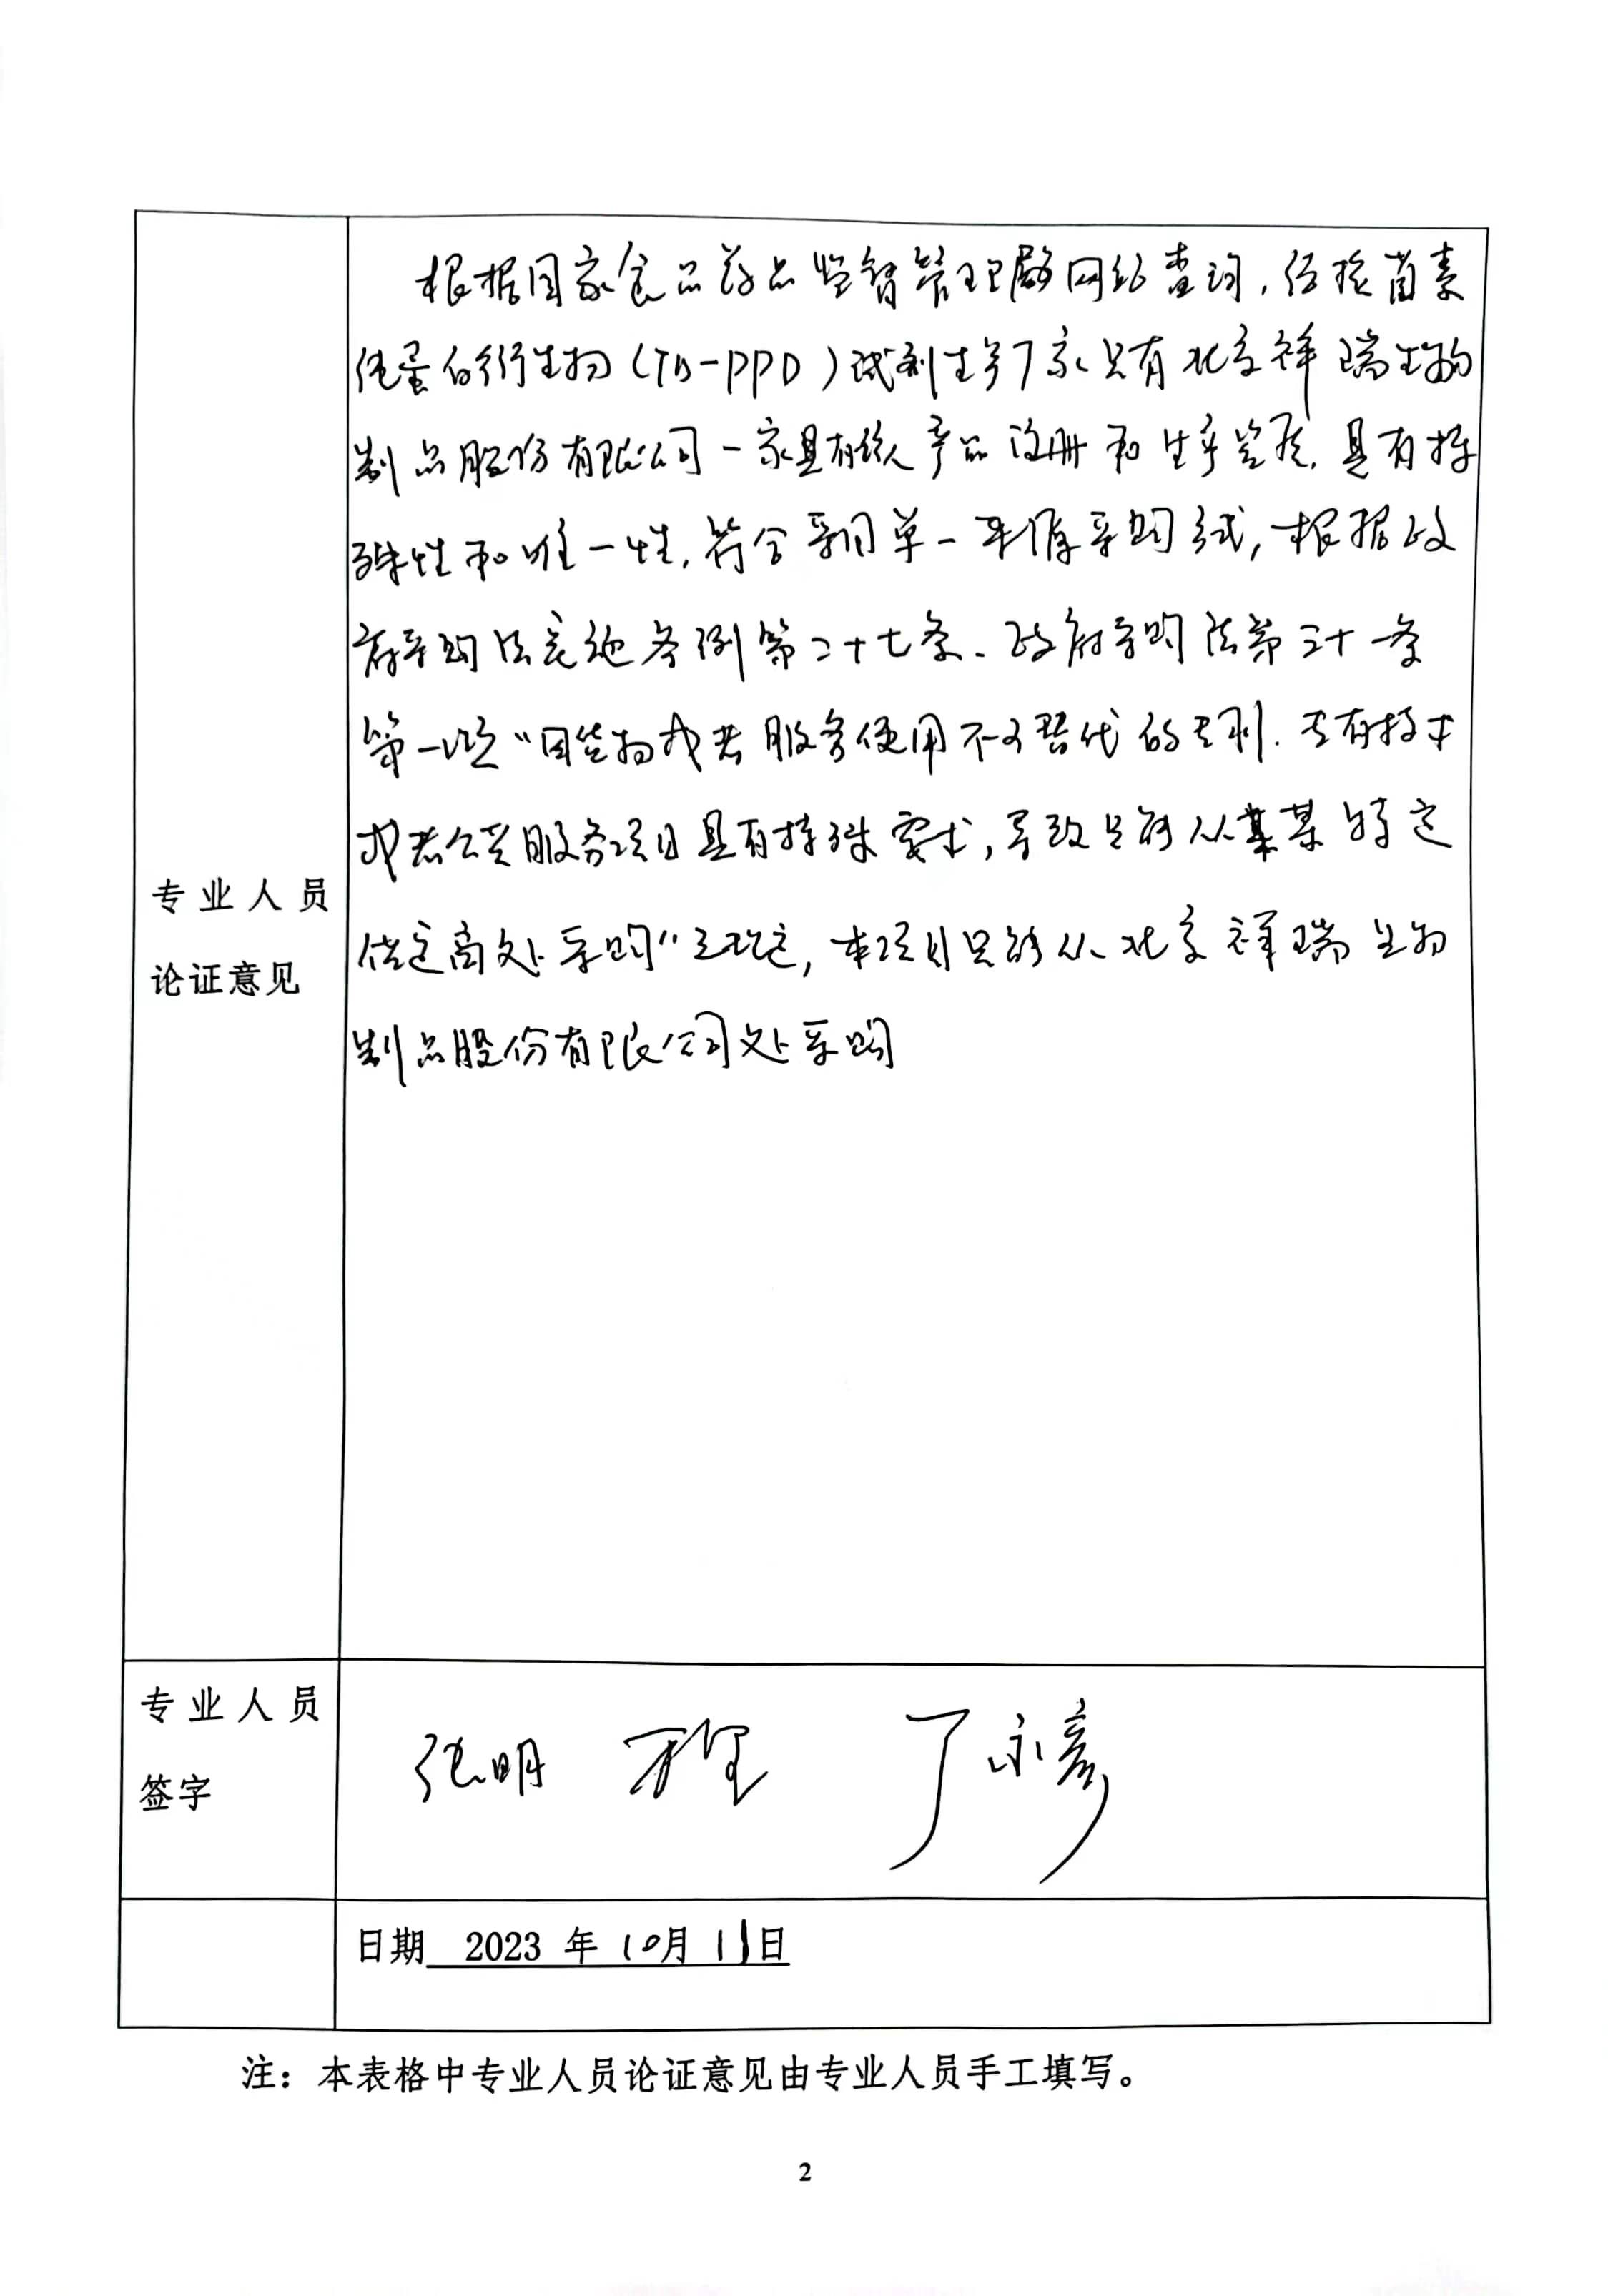 根据国家食品药品监督管理局网站查询，结核菌素
纯蛋白衍生物（TB-PPD）试剂生产厂家只有北京祥瑞生物
制品股份有限公司一家具有该产品注册和生产资质，具有特
殊性和唯一性，符合采用单一来源采购方式，根据政
府采购法实施条例第二十七条、政府采购法第三十一条
第一款“因货物或者服务使用不可替代的专利、专有技术
或者公共服务项目具有特殊要求，导致只能从某某特定
供应商处采购”之规定，本项目只能从北京祥瑞生物
制品股份有限公司处采购
专业人员
论证意见
专业人员
签字
张明 丁永彦
日期 2023 年 10月 11日
注：本表格中专业人员论证意见由专业人员手工填写。
2